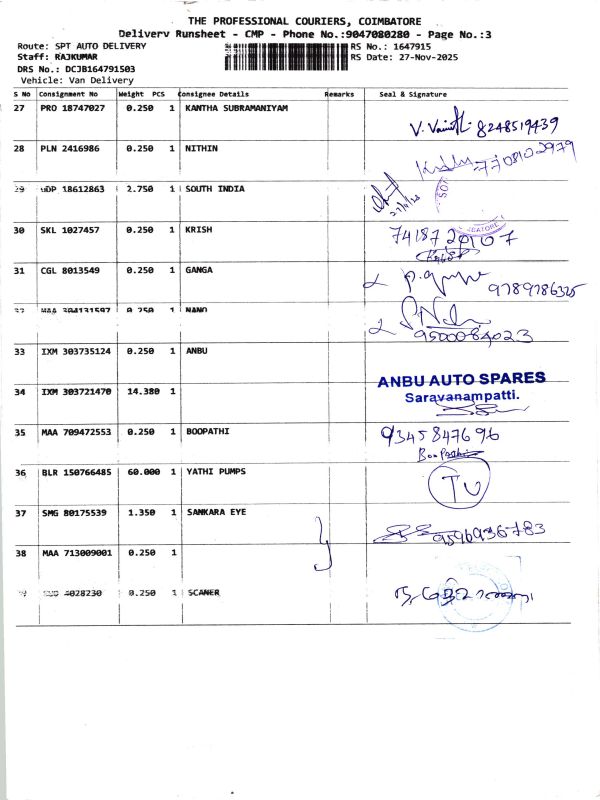 THE PROFESSIONAL COURIERS, COIMBATORE
Delivery Runsheet - CMP - Phone No.:9047080280 - Page No.:3
Route: SPT AUTO DELIVERY RS No.: 1647915
Staff: RAJKUMAR RS Date: 27-Nov-2025
DRS No.: DCJB164791503
Vehicle: Van Delivery
S No Consignment No Weight PCS Consignee Details Remarks Seal & Signature
27 PRO 18747027 0.250 1 KANTHA SUBRAMANIYAM
8248519439
28 PLN 2416986 0.250 1 NITHIN
7708102979
18612863 2.750 1 SOUTH INDIA
30 SKL 1027457 0.250 1 KRISH
7418720107
31 CGL 8013549 0.250 1 GANGA
9789786325
MAA 304131597 0.250 1 NANO
9500084023
33 IXM 303735124 0.250 1 ANBU
34 IXM 303721470 14.380 1
ANBU AUTO SPARES
Saravanampatti.
35 MAA 709472553 0.250 1 BOOPATHI
9345847696
Boopathi
36 BLR 150766485 60.000 1 YATHI PUMPS
37 SMG 80175539 1.350 1 SANKARA EYE
9596936783
38 MAA 713009001 0.250 1
4028230 0.250 1 SCANER